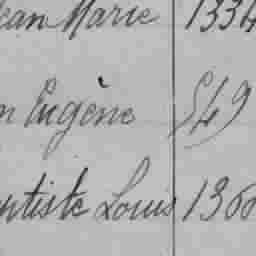 ean Marie 1334
n Eugène 549
ptiste Louis 1366